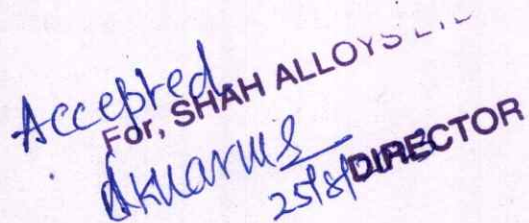 Accepted
For, SHAH ALLOYS LTD
DIRECTOR